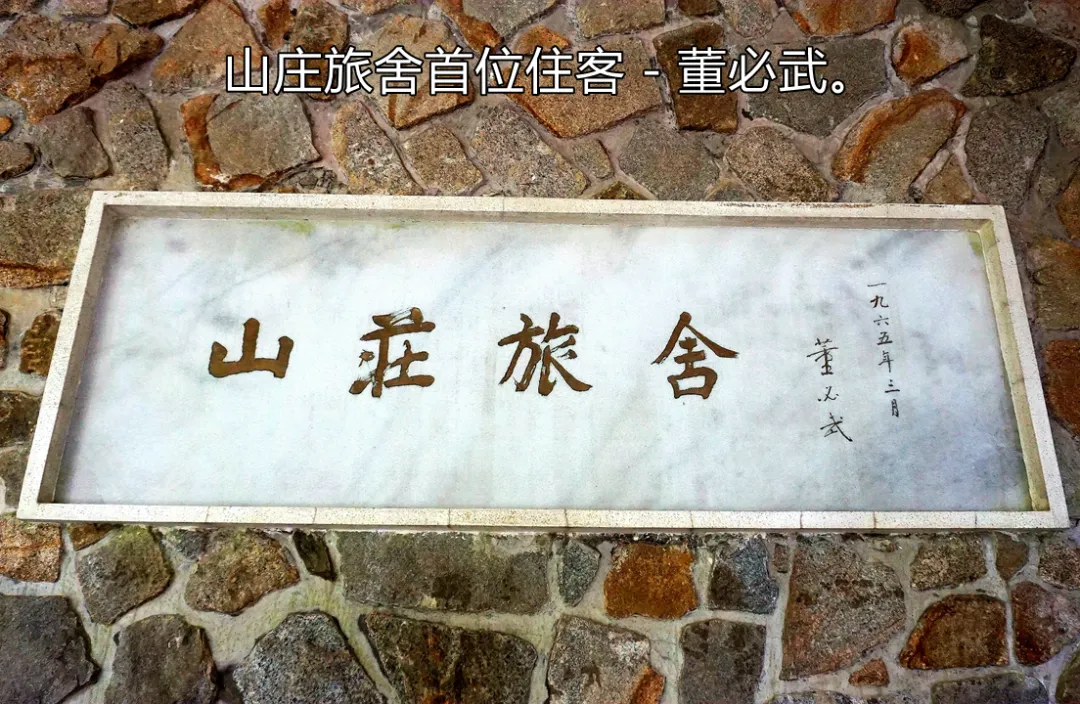 山庄旅舍首位住客 - 董必武。
山莊旅舍
一九六五年三月
董必武